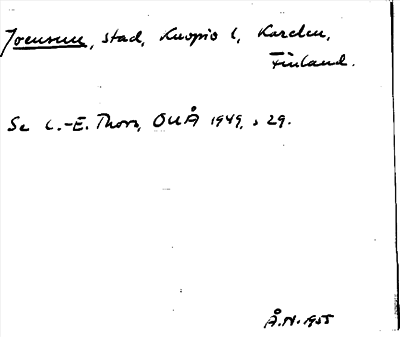 Joensuu, stad, Kuopio l, Karelen,
Finland.
Se C.-E. Thors, OUÅ 1949, s 29.
Å.H. 1955